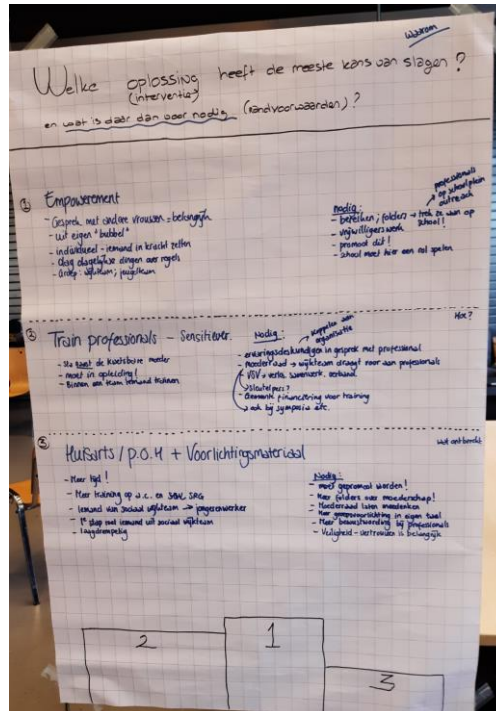 Waarom
Welke oplossing heeft de meeste kans van slagen?
(interventie)
en wat is daar dan voor nodig (randvoorwaarden)?
① Empowerement
- Gesprek met andere vrouwen = belangrijk
- uit eigen "bubbel"
- individueel - iemand in kracht zetten
- dagelijkse dingen over regels
- Groep: wijkteam; jeugdteam
nodig:
- bereiken; folders → trek ze aan op school!
professionals
op schoolplein
outreach
- vrijwilligerswerk
- promoot dit!
- school moet hier een rol spelen
② Train professionals - Sensitiever.
- Sta naast de kwetsbare moeder
- moet in opleiding!
- Binnen een team iemand trainen
Hoe?
Nodig:
koppelen aan
organisatie
- ervaringsdeskundigen in gesprek met professional
- Moederraad → wijkteam draagt voor aan professionals
- VSV = verlos. samenwerk. verband
sleutelpers?
- Gemeente financiering voor training
- ook bij symposia etc.
③ Huisarts / P.O.H + Voorlichtingsmateriaal
- Meer tijd!
- Meer training op
- iemand van sociaal wijkteam → jongerenwerker
- 1e stap met iemand uit sociaal wijkteam
- laagdrempelig
Wat ontbreekt
Nodig:
- moet gepromoot worden!
- Meer folders over moederschap!
- Moederraad laten meedenken
- Meer voorlichting in eigen taal
- Meer bewustwording bij professionals
- Veiligheid - vertrouwen is belangrijk
2
1
3